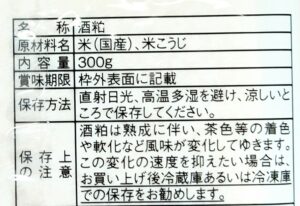 名称 酒粕
原材料名 米(国産)、米こうじ
内容量 300g
賞味期限 枠外表面に記載
保存方法 直射日光、高温多湿を避け、涼しい
ところで保存してください。
保存上の注意 酒粕は熟成に伴い、茶色等の着色
や軟化など風味が変化してゆきます。
この変化の速度を抑えたい場合は、
お買い上げ後冷蔵庫あるいは冷凍庫
での保存をお勧めします。